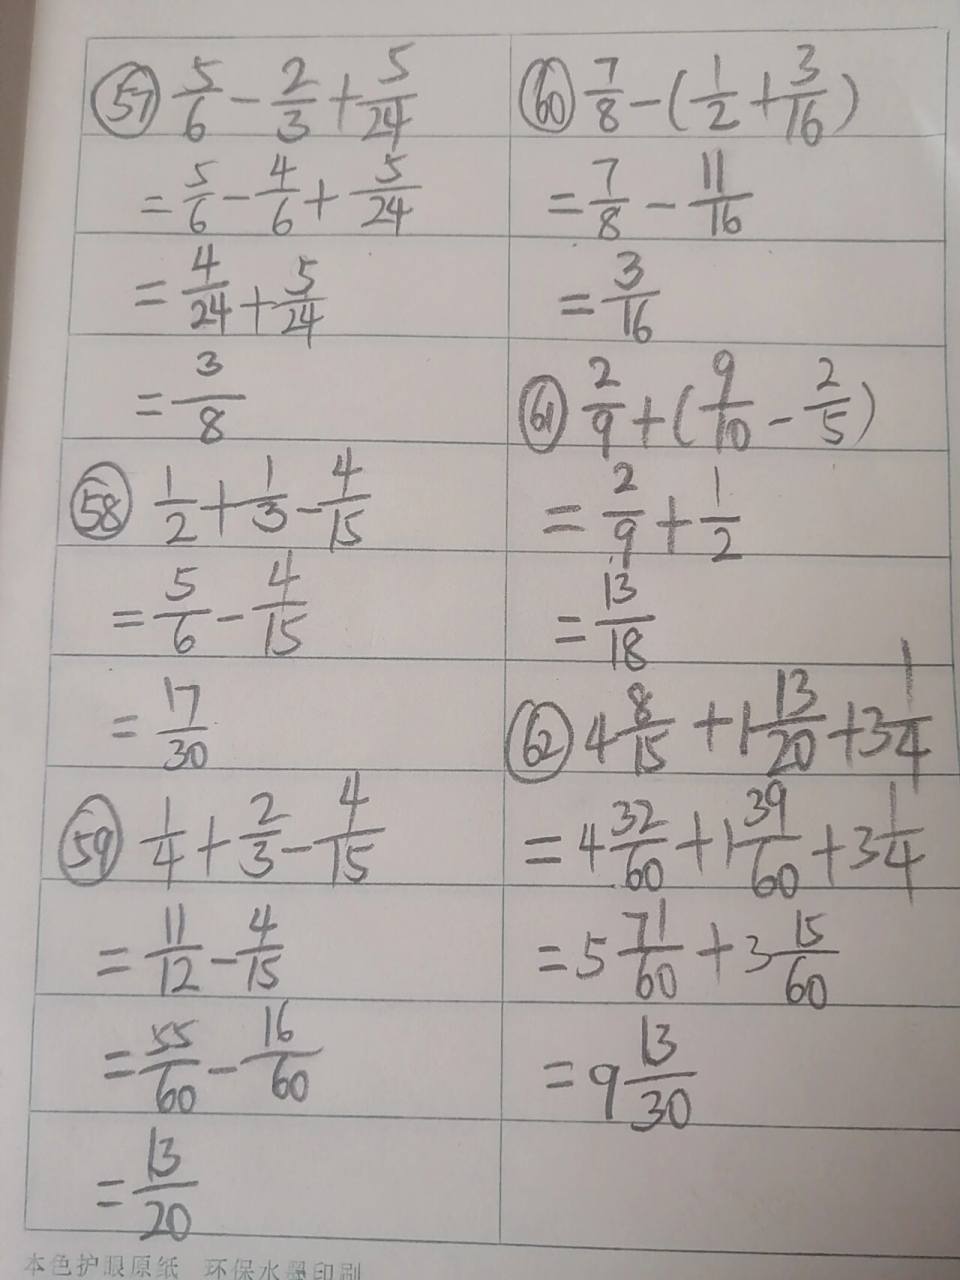 57 5/6 - 2/3 + 5/24
= 5/6 - 4/6 + 5/24
= 4/24 + 5/24
= 3/8
58 1/2 + 1/3 - 4/15
= 5/6 - 4/15
= 17/30
59 1/4 + 2/3 - 4/15
= 11/12 - 4/15
= 55/60 - 16/60
= 13/20
60 7/8 - (1/2 + 3/16)
= 7/8 - 11/16
= 3/16
61 2/9 + (9/10 - 2/5)
= 2/9 + 1/2
= 13/18
62 4 8/15 + 1 13/20 + 3 1/4
= 4 32/60 + 1 39/60 + 3 1/4
= 5 71/60 + 3 15/60
= 9 13/30
本色护眼原纸 环保水墨印刷